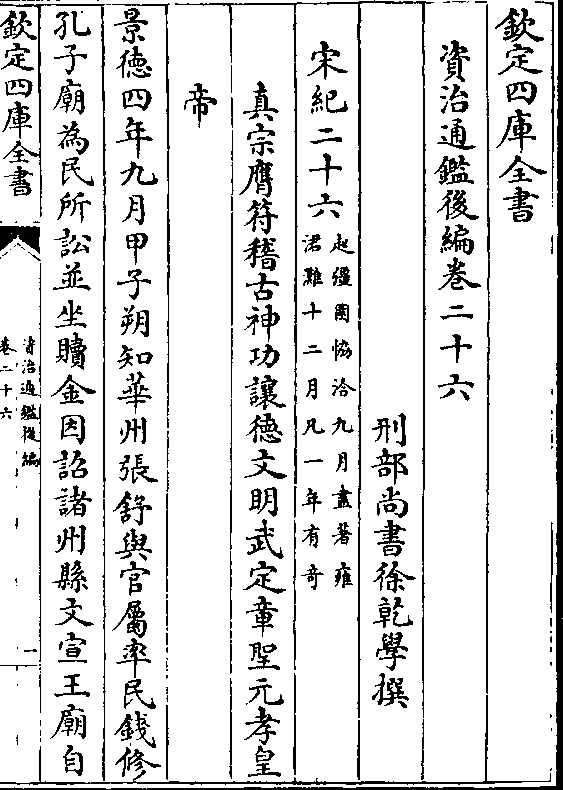 欽定四庫全書
資治通鑑後編卷二十六
刑部尚書徐乾學撰
宋紀二十六
起彊圉協洽九月盡著雍
涒灘十二月凡一年有奇
真宗膺符稽古神功讓德文明武定章聖元孝皇
帝
景德四年九月甲子朔知華州張舒與官屬率民錢修
孔子廟為民所訟並坐贖金因詔諸州縣文宣王廟自
欽定四庫全書
資治通鑑後編
卷二十六
一